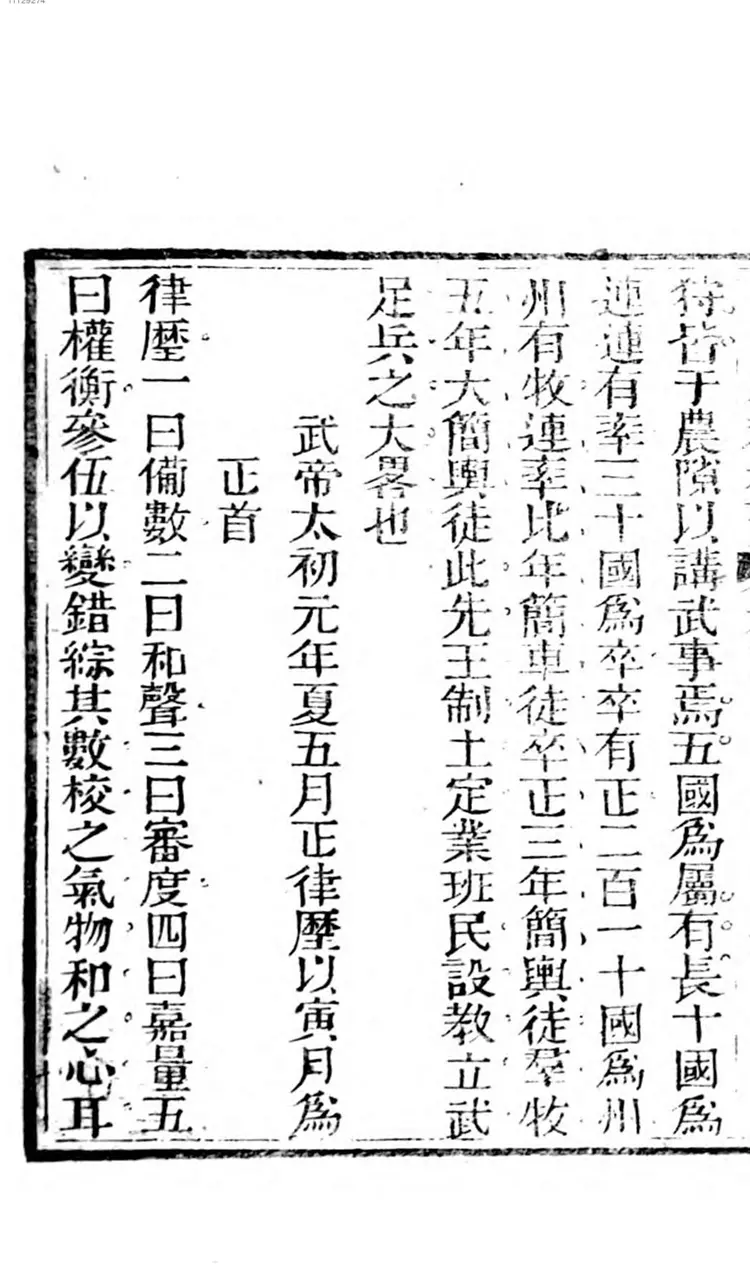 狩皆于農隙以講武事焉五國爲屬有長十國爲
連連有率三十國爲卒卒有正二百一十國爲州
州有牧連率比年簡車徒卒正三年簡輿徒羣牧
五年大簡輿徒此先王制土定業班民設教立武
足兵之大畧也
武帝太初元年夏五月正律歷以寅月爲
正首
律歷一曰備數二曰和聲三曰審度四曰嘉量五
曰權衡參伍以變錯綜其數校之氣物和之心耳